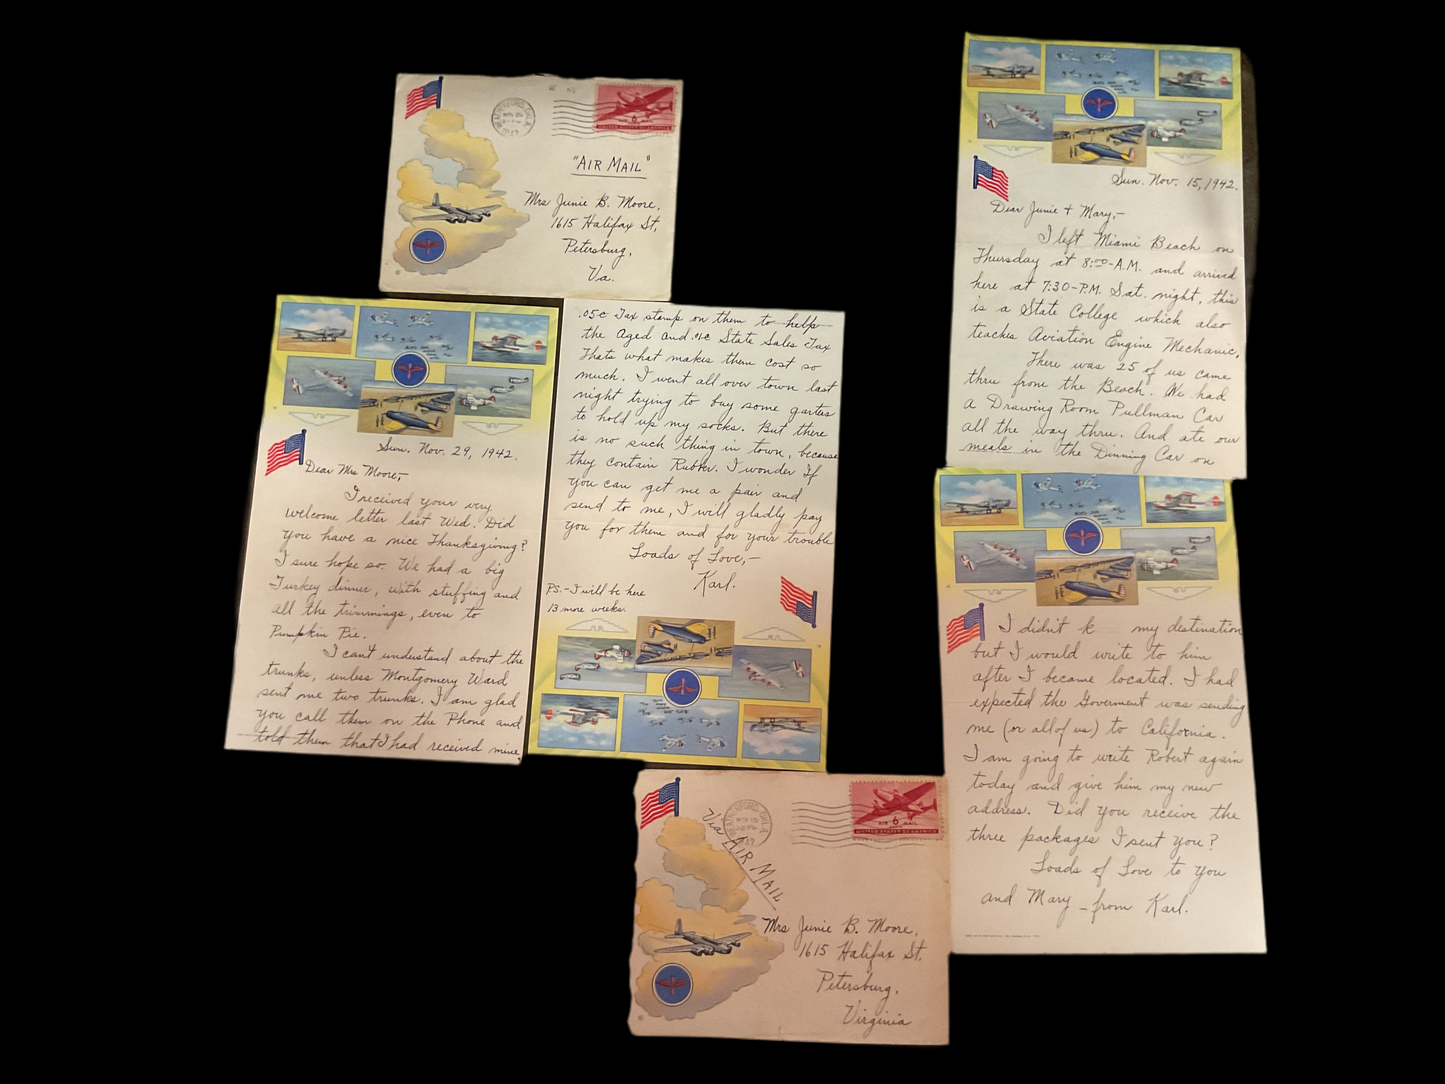 "AIR MAIL"
Mrs Junie B. Moore,
1615 Halifax St,
Petersburg,
Va.
AIR 6 MAIL
UNITED STATES OF AMERICA
Sun. Nov. 29, 1942.
Dear Mrs Moore,-
I received your very
welcome letter last Wed. Did
you have a nice Thanksgiving?
I sure hope so. We had a big
Turkey dinner, with stuffing and
all the trimmings, even to
Pumpkin Pie.
I can't understand about the
trunks, unless Montgomery Ward
sent me two trunks. I am glad
you call them on the Phone and
told them that I had received mine.
.05c Tax stamp on them to help
the Aged and .01c State Sales Tax
Thats what makes them cost so
much. I went all over town last
night trying to buy some garters
to hold up my socks. But there
is no such thing in town, because
they contain Rubber. I wonder If
you can get me a pair and
send to me, I will gladly pay
you for them and for your trouble
Loads of Love,-
Karl.
PS.- I will be here
13 more weeks.
Sun. Nov. 15, 1942.
Dear Junie + Mary,-
I left Miami Beach on
Thursday at 8:00-A.M. and arrived
here at 7:30-P.M. Sat. night, this
is a State College which also
teaches Aviation Engine Mechanic.
There was 25 of us came
thru from the Beach. We had
a Drawing Room Pullman Car
all the way thru. And ate our
meals in the Dinning Car on
I didn't k my destination
but I would write to him
after I became located. I had
expected the Goverment was sending
me (or all of us) to California.
I am going to write Robert again
today and give him my new
address. Did you receive the
three packages I sent you?
Loads of Love to you
and Mary - from Karl.
Via AIR MAIL
Mrs Junie B. Moore,
1615 Halifax St.
Petersburg,
Virginia
AIR 6 MAIL
UNITED STATES OF AMERICA